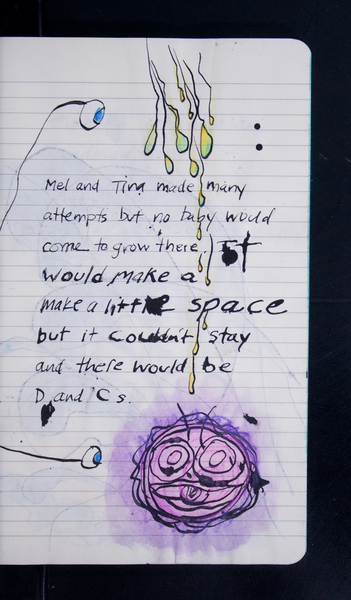 Mel and Tina made many
attempts but no baby would
come to grow there. It
would make a
make a little space
but it couldn't stay
and there would be
D and Cs.